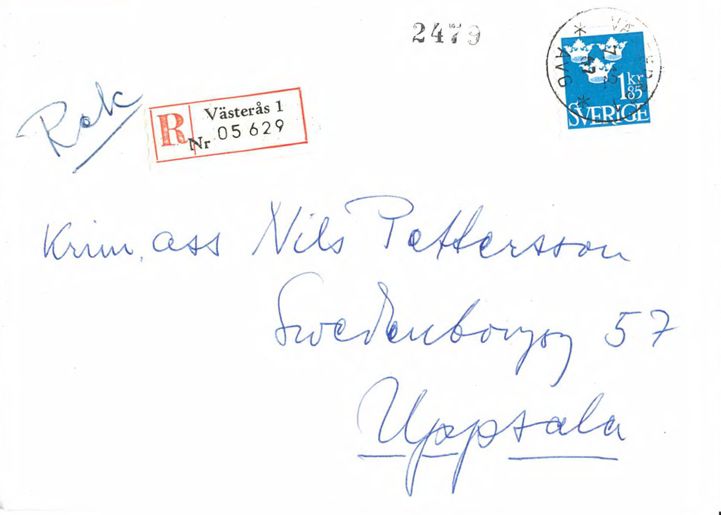 2479
1 kr
85
SVERIGE
Rek
R Västerås 1
Nr 05 629
Krim. ass Nils Pettersson
Swedenborgsg 57
Uppsala